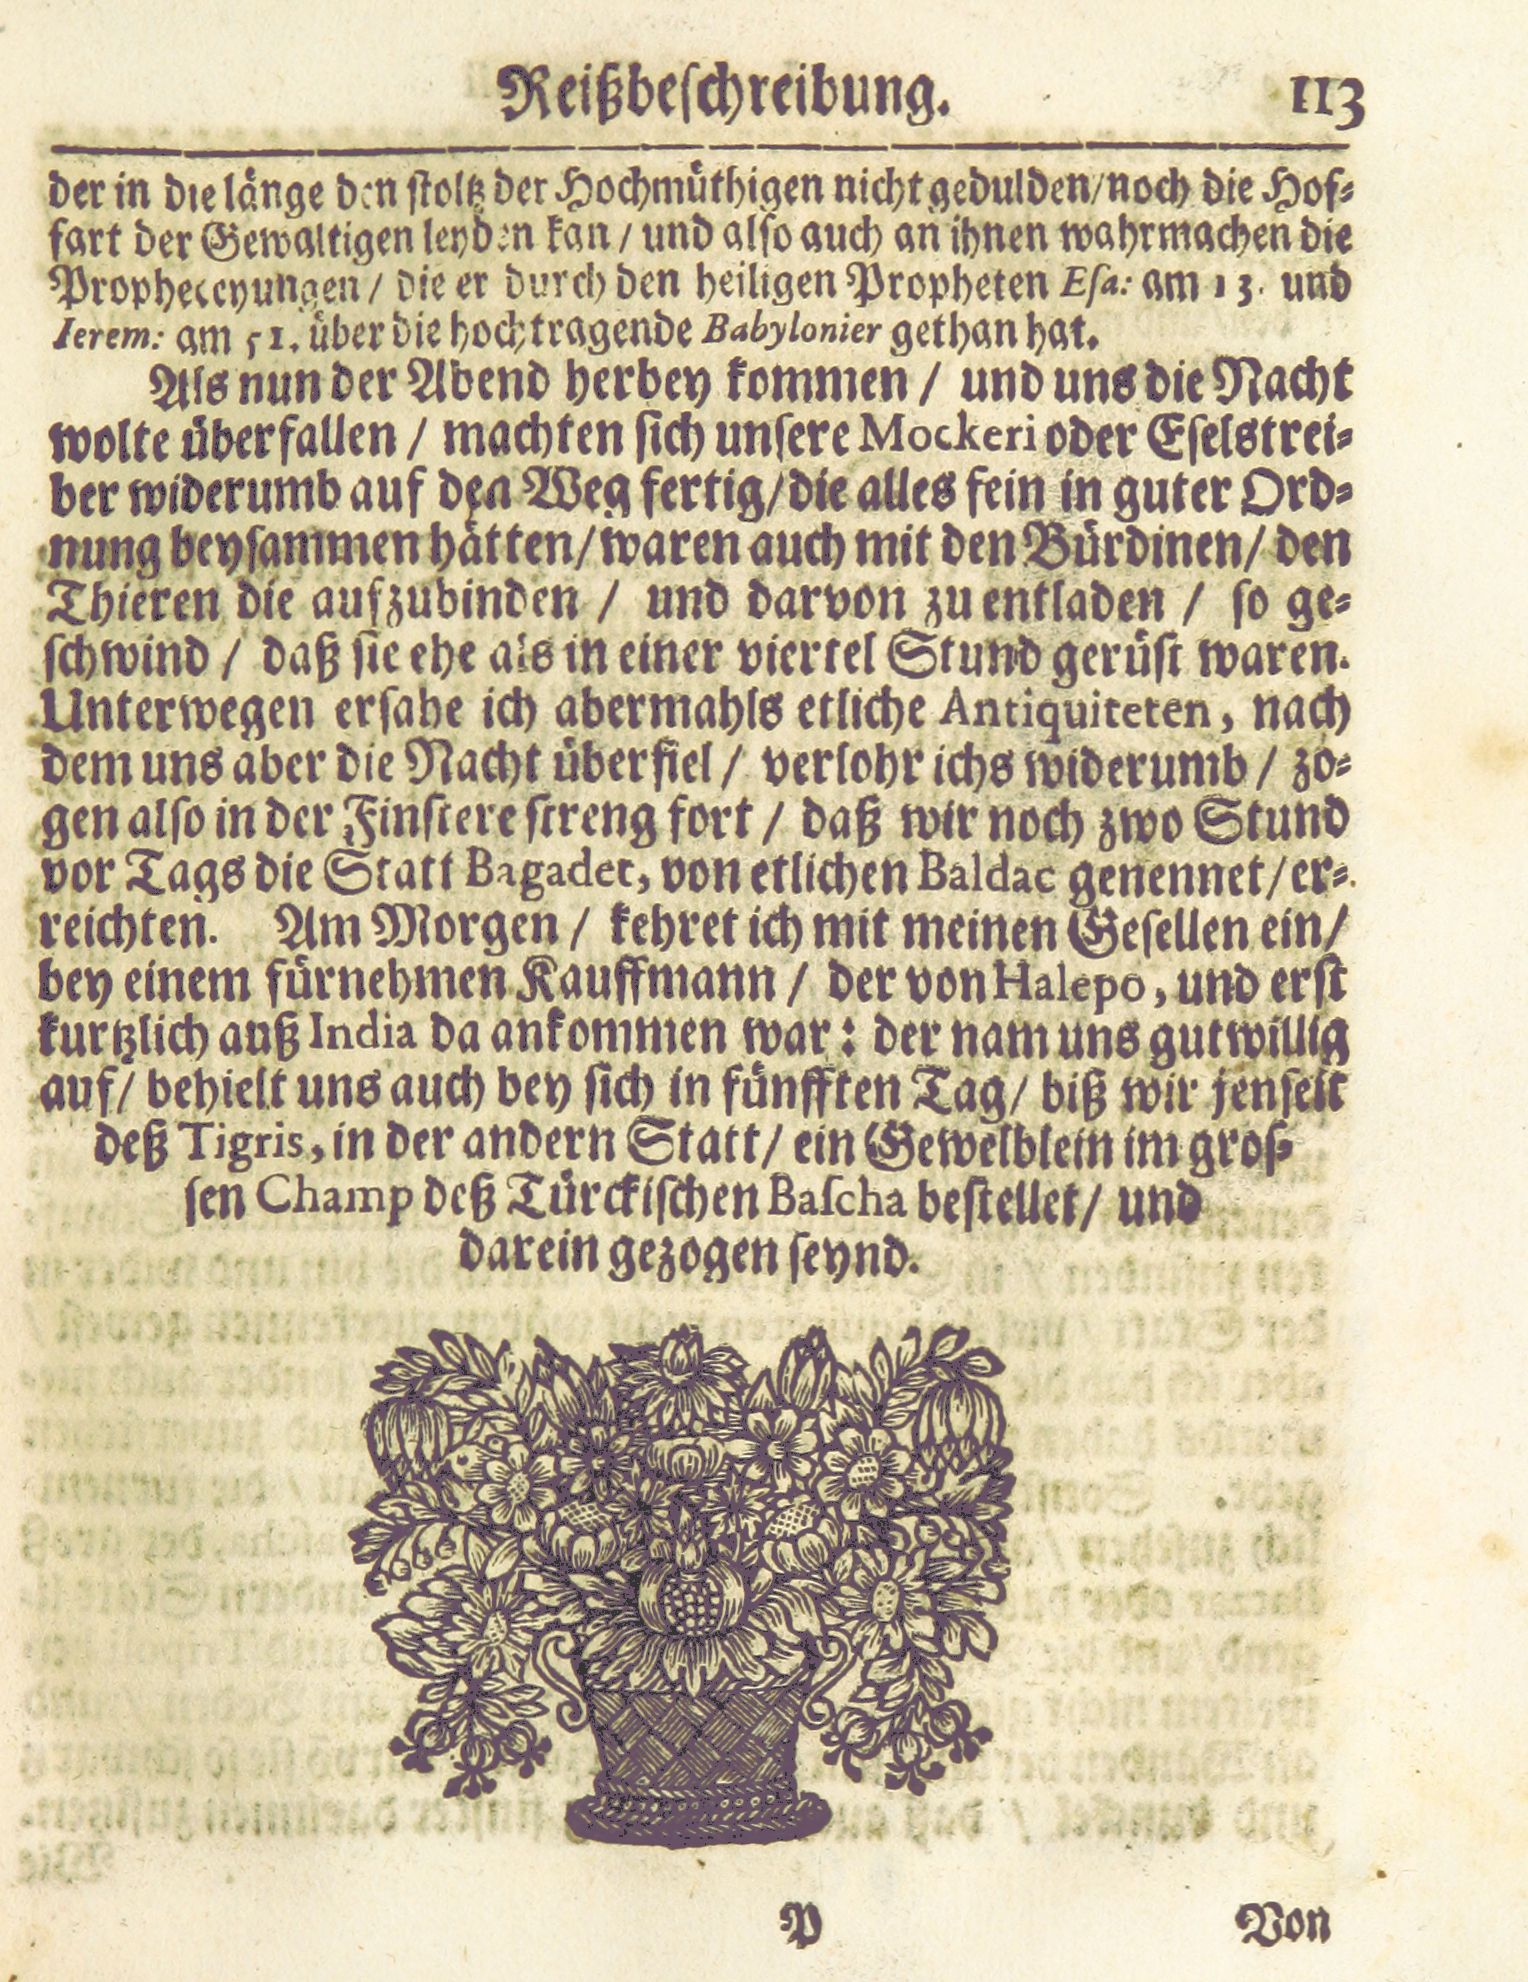 Reißbeſchreibung. 113
der in die länge den ſtoltz der Hochmüthigen nicht gedulden/noch die Hof⸗
fart der Gewaltigen leyden kan / und alſo auch an ihnen wahrmachen die
Propheceyungen / die er durch den heiligen Propheten Eſa: am 13. und
Ierem: am 51. über die hochtragende Babylonier gethan hat.
Als nun der Abend herbey kommen / und uns die Nacht
wolte überfallen / machten ſich unſere Mockeri oder Eſelstrei⸗
ber widerumb auf den Weg fertig/die alles fein in guter Ord⸗
nung beyſammen hätten/waren auch mit den Bürdinen/ den
Thieren die aufzubinden / und darvon zu entladen / ſo ge⸗
ſchwind / daß ſie ehe als in einer viertel Stund gerüſt waren.
Unterwegen erſahe ich abermahls etliche Antiquiteten, nach
dem uns aber die Nacht überfiel / verlohr ichs widerumb / zo⸗
gen alſo in der Finſtere ſtreng fort / daß wir noch zwo Stund
vor Tags die Statt Bagadet, von etlichen Baldac genennet/er⸗
reichten. Am Morgen / kehret ich mit meinen Geſellen ein/
bey einem fürnehmen Kauffmann / der von Halepo, und erſt
kurtzlich auß India da ankommen war: der nam uns gutwillig
auf/ behielt uns auch bey ſich in fünfften Tag/ biß wir jenſeit
deß Tigris, in der andern Statt/ ein Gewelblein im groſ⸗
ſen Champ deß Türckiſchen Baſcha beſtellet/ und
darein gezogen ſeynd.
P Von